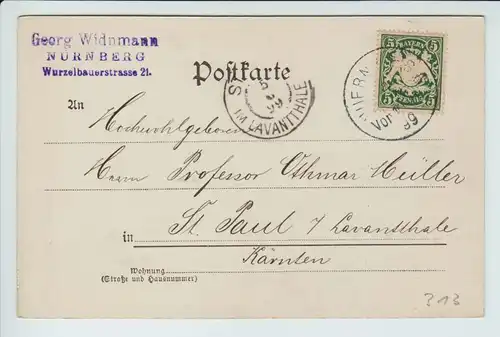 Georg Widnmann
NÜRNBERG
Wurzelbauerstrasse 21.
Postkarte
5 BAYERN 5
5 PFENNIG 5
Vor
99
S
IM LAVANTTHALE
99
An
Hochwohlgeboren
Herrn Professor Othmar Müller
in St. Paul / Lavantthale
Kärnten
Wohnung
(Straße und Hausnummer)
313